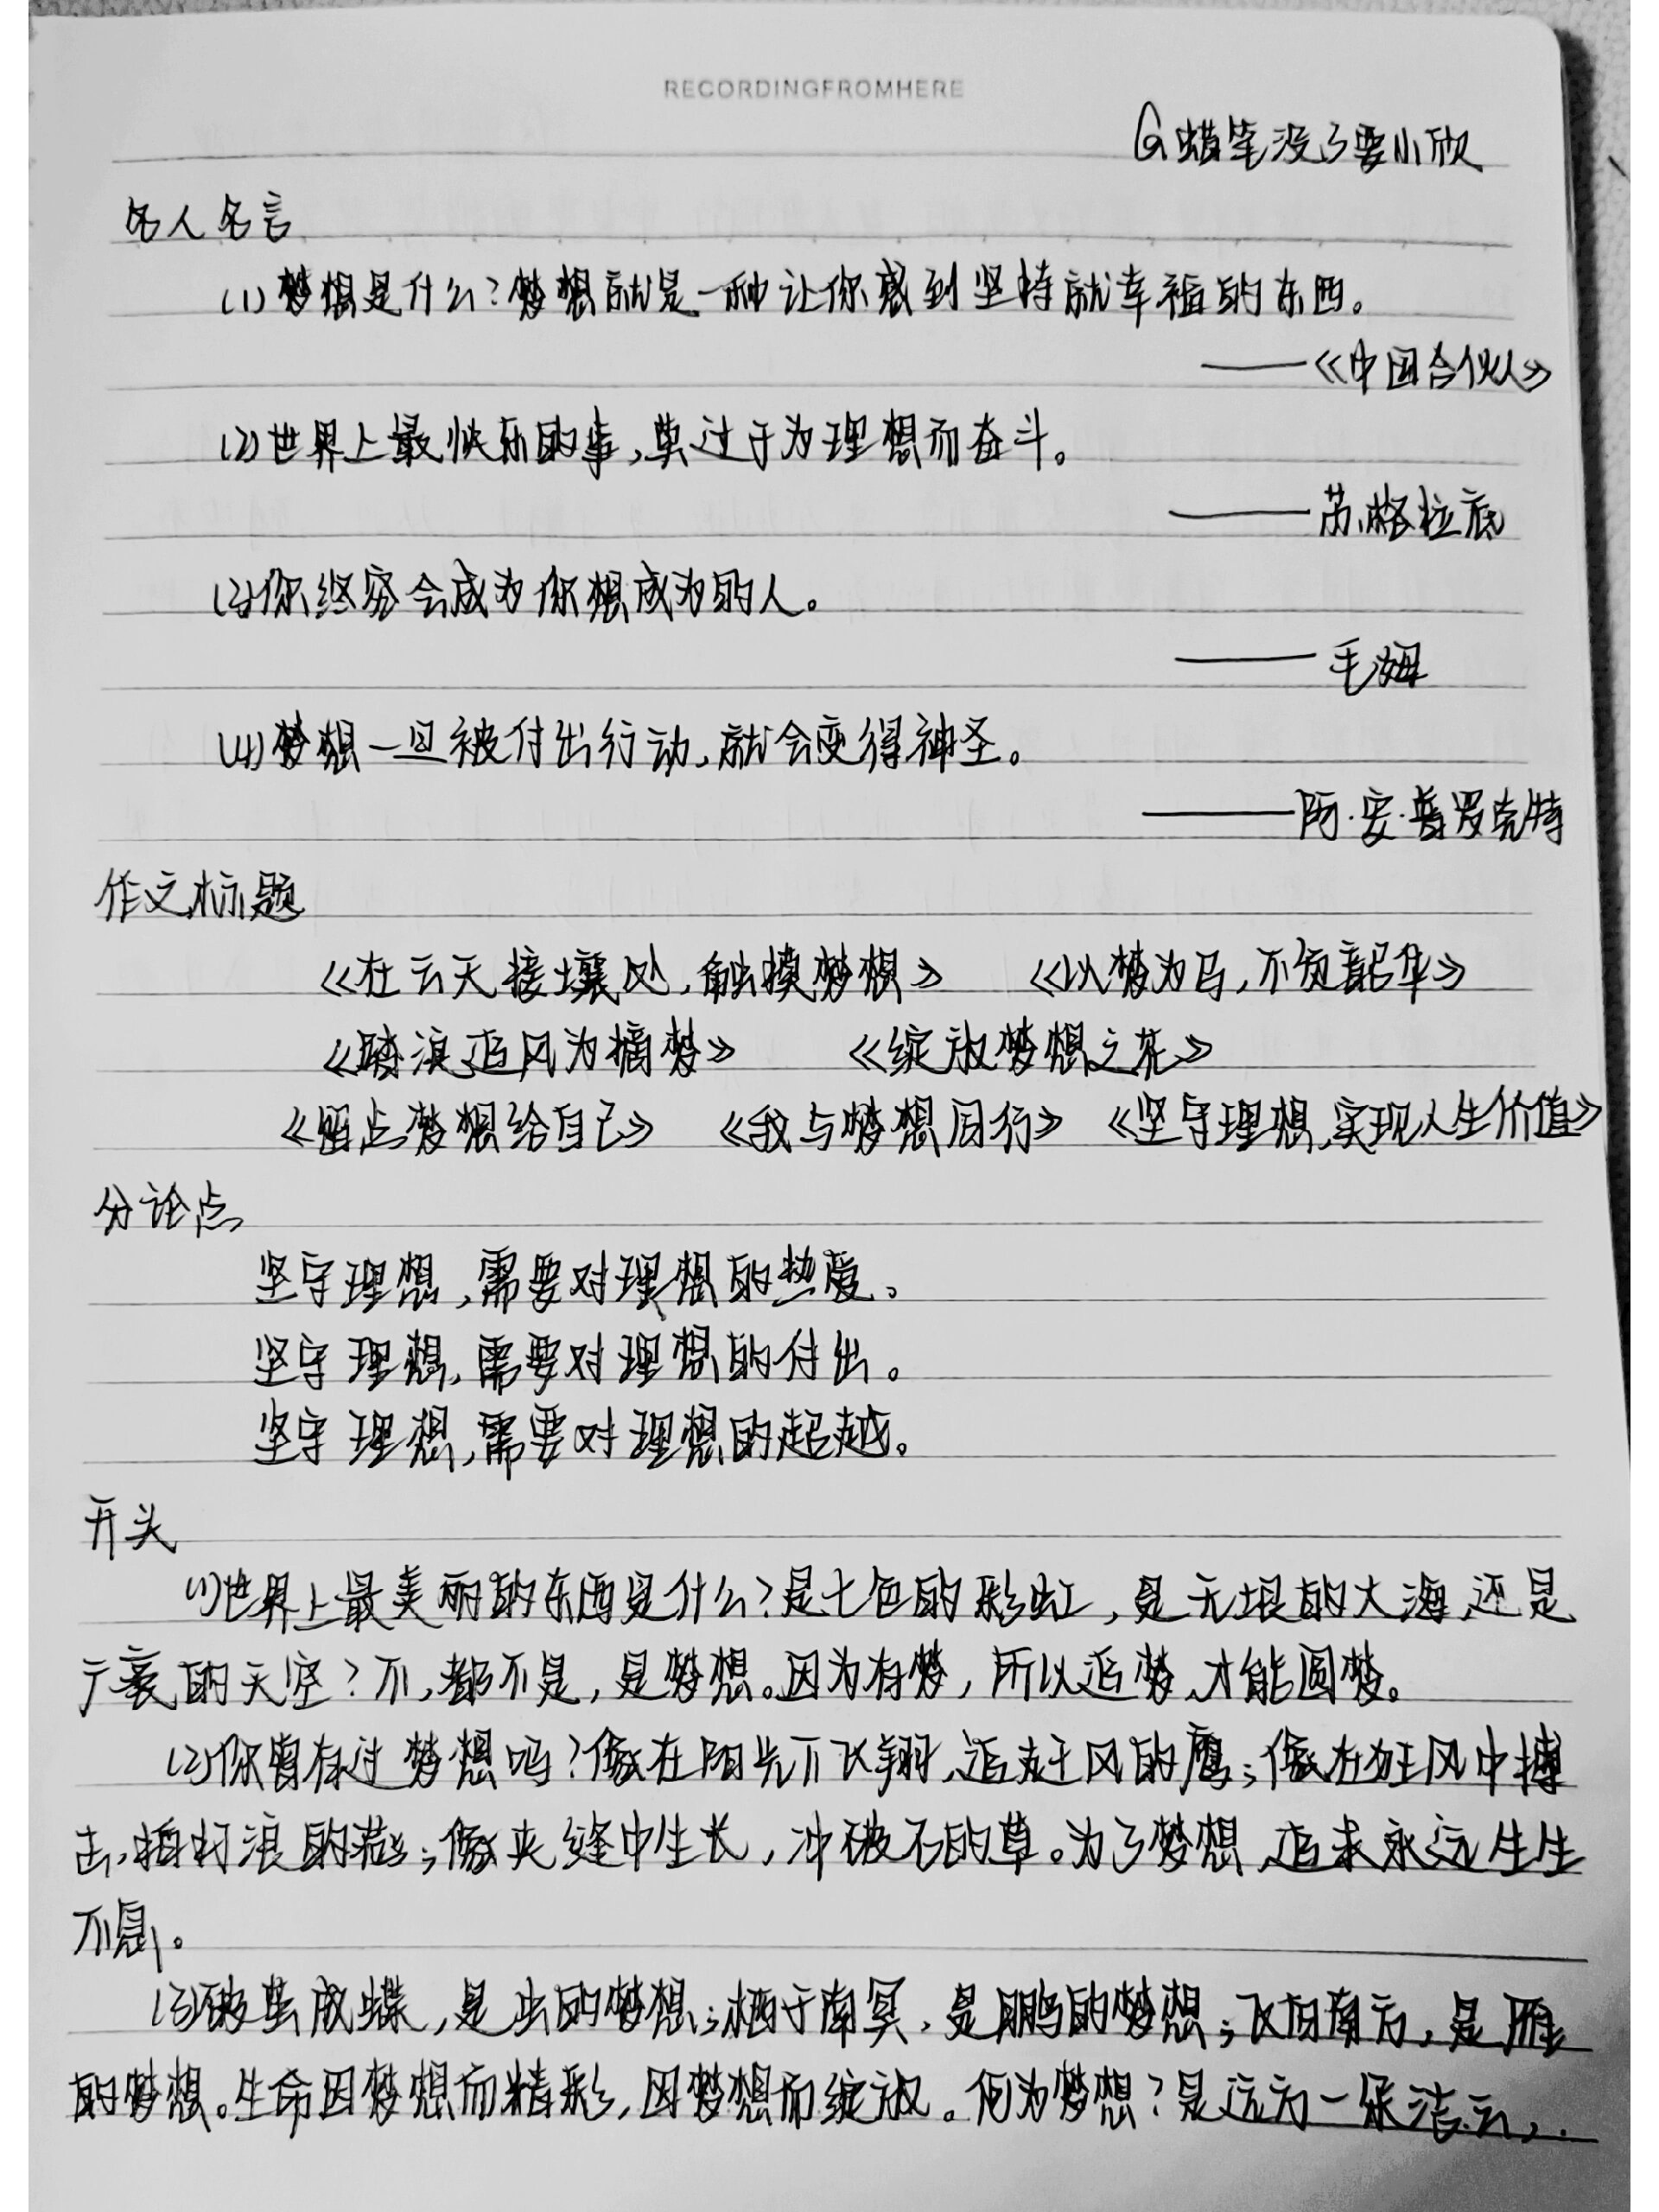 RECORDINGFROMHERE
@蜡笔没了要小欣
名人名言
(1)梦想是什么?梦想就是一种让你感到坚持就幸福的东西。
——《中国合伙人》
(2)世界上最快乐的事,莫过于为理想而奋斗。
——苏格拉底
(3)你终究会成为你想成为的人。
——毛姆
(4)梦想一旦被付出行动,就会变得神圣。
——阿·安·普罗克特
作文标题
《在云天接壤处,触摸梦想》 《以梦为马,不负韶华》
《踏浪追风为摘梦》 《绽放梦想之花》
《留点梦想给自己》 《我与梦想同行》 《坚守理想,实现人生价值》
分论点
坚守理想,需要对理想的热爱。
坚守理想,需要对理想的付出。
坚守理想,需要对理想的超越。
开头
(1)世界上最美丽的东西是什么?是七色的彩虹,是无垠的大海,还是
广袤的天空?不,都不是,是梦想。因为有梦,所以追梦,才能圆梦。
(2)你曾有过梦想吗?像在阳光下飞翔,追赶风的鹰;像在狂风中搏
击,拍打浪的;像夹缝中生长,冲破石的草。为了梦想,追求永远生生
不息。
(3)破茧成蝶,是虫的梦想;栖于南冥,是鹏的梦想;飞向南方,是雁
的梦想。生命因梦想而精彩,因梦想而绽放。何为梦想?是远方一张洁云,..